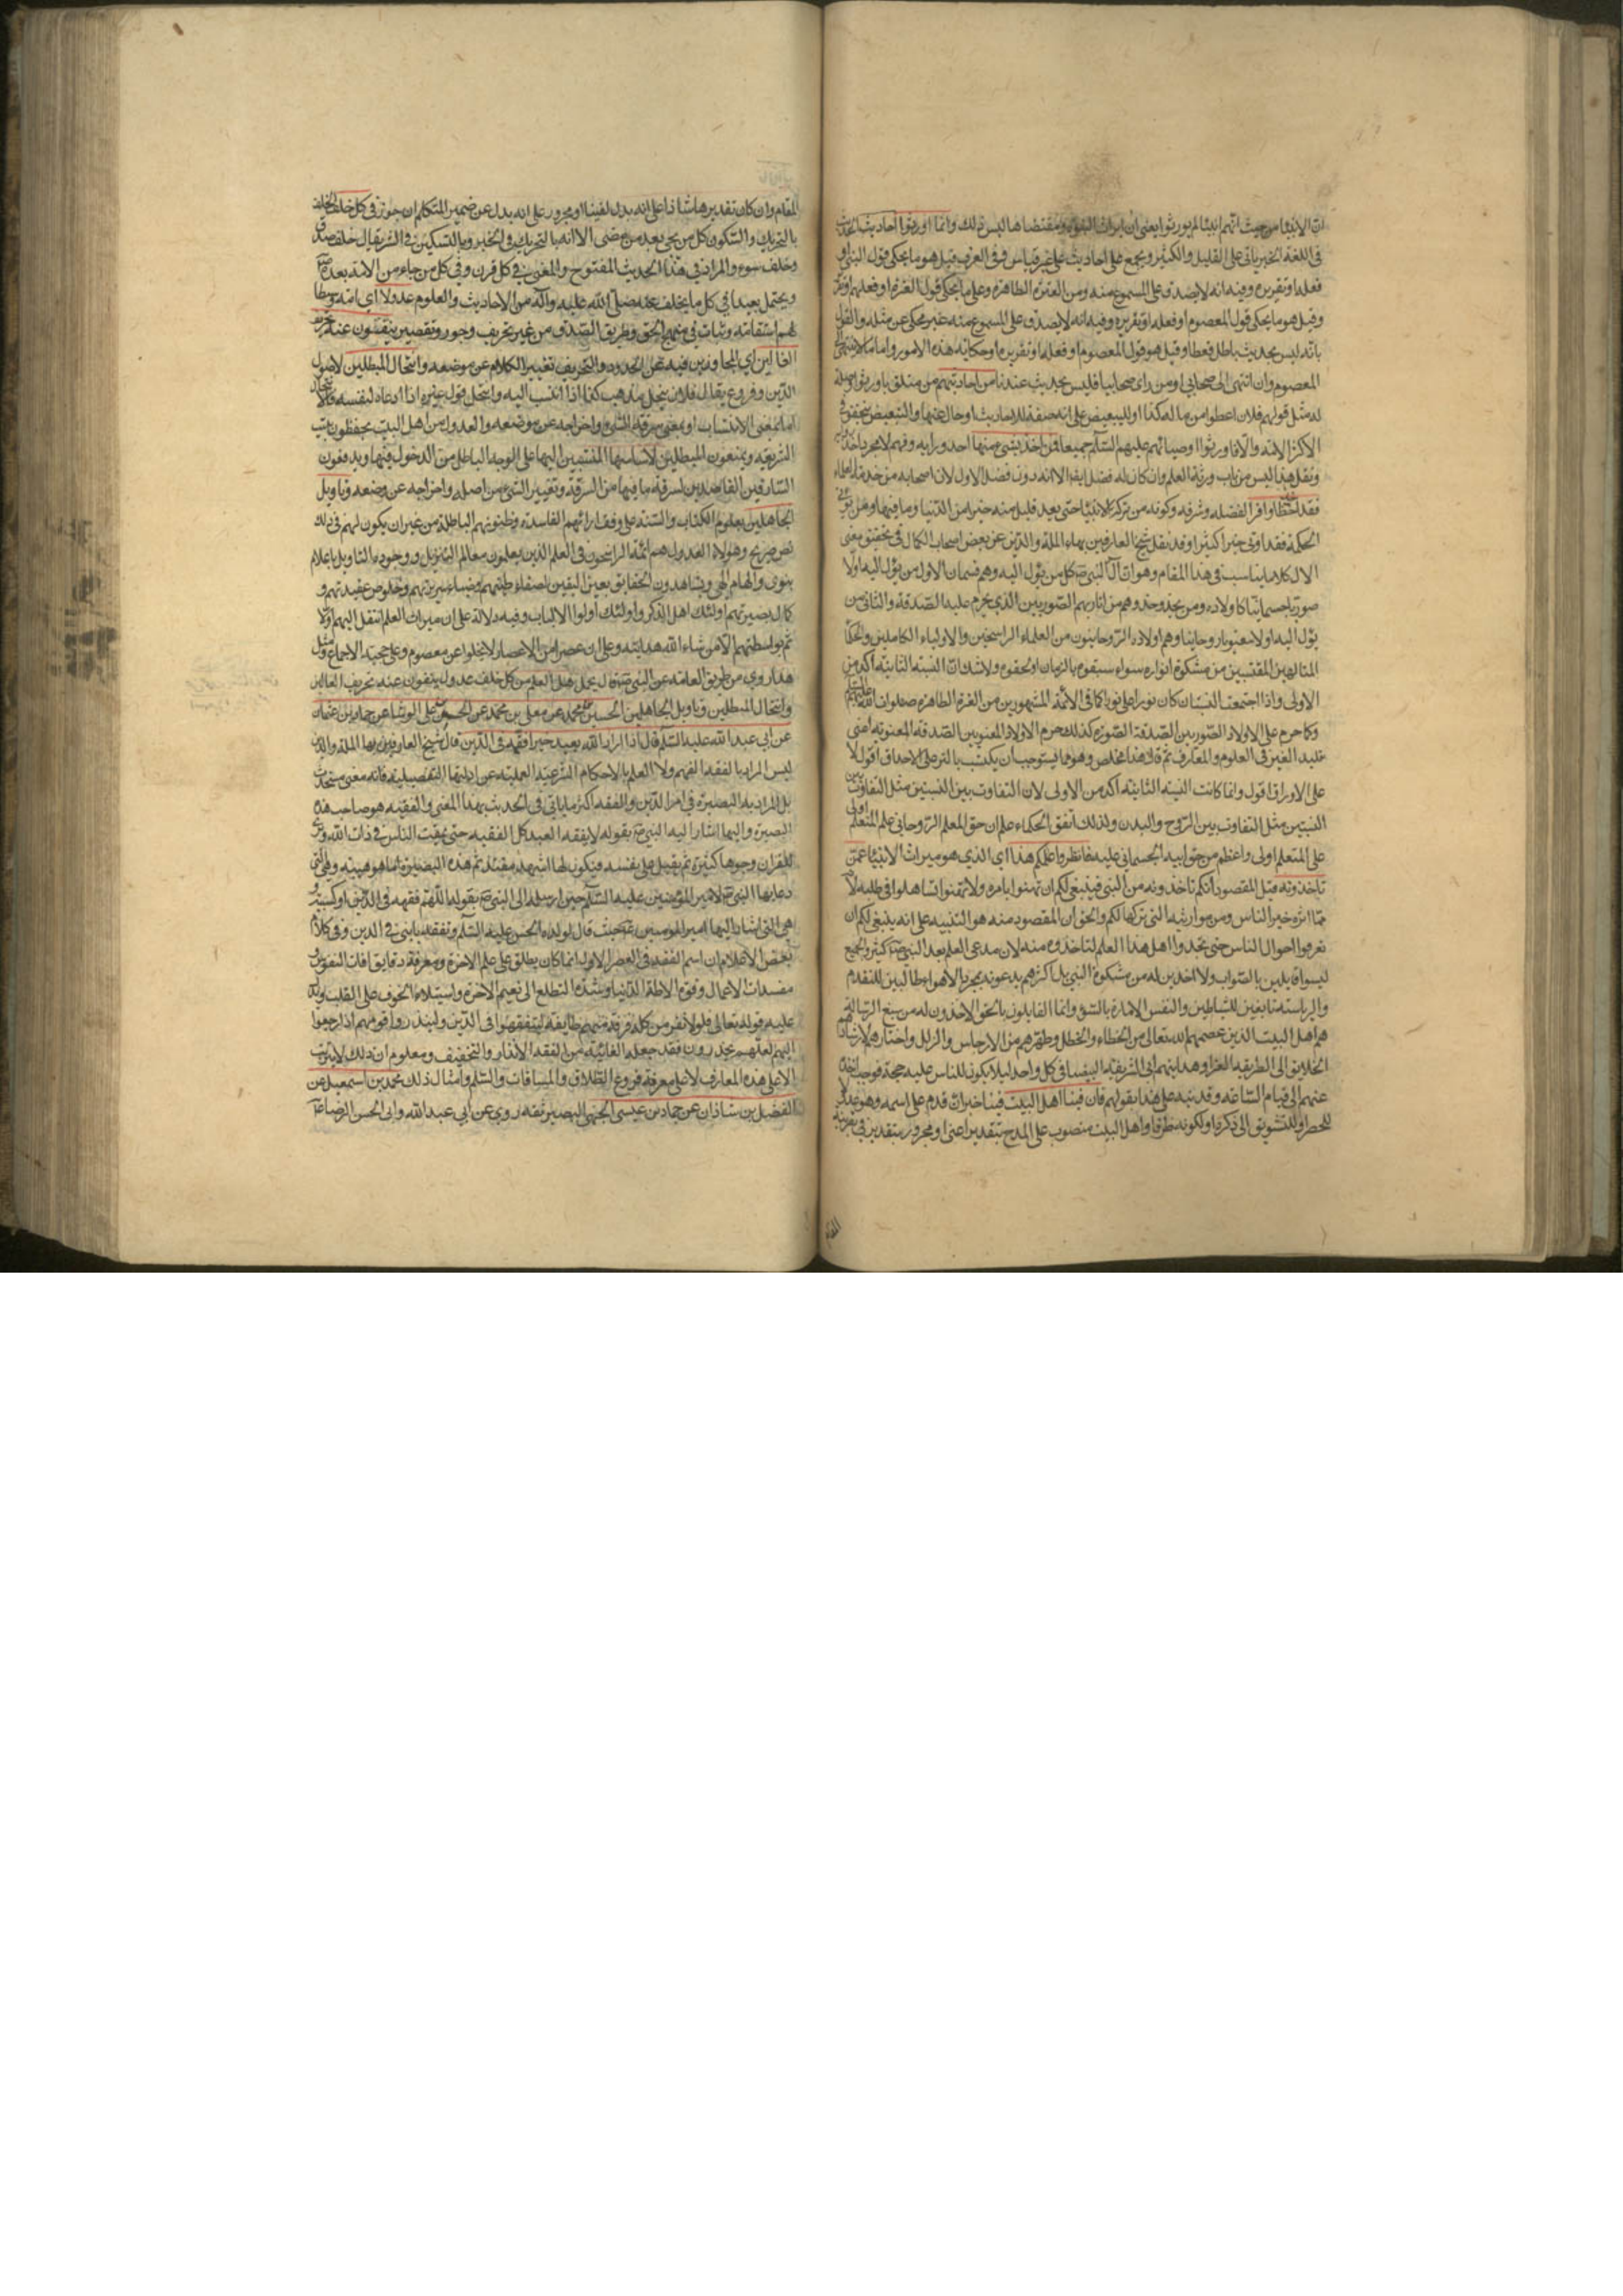 ان الانبياء من حيث انهم انبياء لم يورثوا يعنى ان ميراث النبوة ومقتضاها ليس ذلك وانما اورثوا احاديث الحديث
فى اللغة الخبر ياتى على القليل والكثير ويجمع على احاديث على غير قياس وفى العرف قيل هو ما يحكى قول النبى او
فعله او تقريره وفيه انه لا يصدق على المسموع منه ومن العترة الطاهرة وعلى ما يحكى قول العترة او فعلهم او تقر
وقيل هو ما يحكى قول المعصوم او فعله او تقريره وفيه انه لا يصدق على المسموع منه غير محكى عن مثله والقول
بانه ليس بحديث باطل قطعا وقيل هو قول المعصوم او فعله او تقريره او حكاية هذه الامور واما ما لا ينتهى الى
المعصوم وان انتهى الى صحابى او من راى صحابيا فليس بحديث عندنا من احاديثهم من متعلق باورثوا صلة
له مثل قولهم فلان اعطوا من ماله كذا او للتبعيض على انه صفة للاحاديث او حال عنها والتبعيض يتحقق فى
الاكثر الامة والا فاورثوا اوصيائهم عليهم السلام جميعا فمن اخذ بشئ منها اخذ دراية وفهم لا مجرد اخذ
ونقل هذا ليس من باب ورثة العلم وان كان له فضل ايضا الا انه دون فضل الاول لان اصحابه من خدمة العلماء
فقد اخذ حظا وافرا لفضله وشرفه وكونه من تركة الانبياء حتى يعد قليل منه خيرا من الدنيا وما فيها ومن يؤتى
الحكمة فقد اوتى خيرا كثيرا وقد نقل شيخ العارفين بهاء الملة والدين عن بعض اصحاب الكمال فى تحقيق معنى
الال كلاما يناسب فى هذا المقام وهو ان آل النبى ص كل من يؤل اليه وهم قسمان الاول من يؤل اليه اولا
صوريا جسمانيا كاولاده ومن يحذو حذوهم من اقاربهم الصوريين الذى يحرم عليه الصدقة والثانى من
يؤل اليه اولا معنويا روحانيا وهم اولاده الروحانيون من العلماء الراسخين والاولياء الكاملين والحكماء
المتالهين المقتبسين من مشكوة انواره سواء سبقوه بالزمان او لحقوه ولا شك ان النسبة الثانية اكد من
الاولى واذا اجتمعت النسبتان كان نورا على نور كما فى الائمة المشهورين من العترة الطاهرة صلوات الله عليهم
وكما حرم على الاولاد الصوريين الصدقة الصورية كذلك حرم الاولاد المعنويين الصدقة المعنوية اعنى
تقليد الغير فى العلوم والمعارف ثم قال هذا ملخص وهو مما يستوجب ان يكتب بالتبر على الاحداق اقول لا
على الاوراق اقول وانما كانت النسبة الثانية اكد من الاولى لان التفاوت بين النسبتين مثل التفاوت بين
النسبتين مثل التفاوت بين الروح والبدن ولذلك اتفق الحكماء على ان حق المعلم الروحانى على المتعلم اولى
على المتعلم اولى واعظم من حق ابيه الجسمانى عليه فانظروا علمكم هذا اى الذى هو ميراث الانبياء عمن
تاخذونه قيل المقصود انكم تاخذونه من النبى فينبغى لكم ان تهتموا بامره ولا تساهلوا فى طلبه لانه
مما اثره خير الناس ومن مواريثه التى تركها لكم والحق ان المقصود منه هو التنبيه على انه ينبغى لكم ان
تعرفوا احوال الناس حتى تجدوا اهل هذا العلم لتاخذوه منه لان مدعى العلم بعد النبى ص كثير والجميع
ليسوا قابلين بالصواب ولا اخذين له من مشكوة النبى بل اكثرهم يدعونه بمجرد الاهواء طالبين للتقدم
والرياسة تابعين للشياطين والنفس الامارة بالسوء وانما القايلون بالحق الاخذون له من منبع الرسالة هم
هم اهل البيت الذين عصمهم الله تعالى من الخطاء والخطل وطهرهم من الارجاس والزلل واختارهم لارشاد
الخلايق الى الطريقة الغراء وهدايتهم الى الشريقة البيضاء فى كل واحد لئلا يكون للناس عليه حجة فوجب اخذه
عنهم الى قيام الساعة وقد نبه على هذا بقولهم فان فينا اهل البيت فينا خبر ان قدم على اسمه وهو عدولا
للحصر او للتشويق الى ذكره او لكونه ظرفا واهل البيت منصوب على المدح بتقدير اعنى او مجرور بتقدير فى بقرينة
المقام
المقام وان كان تقديرها شاذا على انه بدل لفينا او مجرور على انه بدل عن ضمير المتكلم ان جوز فى كل خلف الخلف
بالتحريك والسكون كل من يجئ بعد من مضى الا انه بالتحريك فى الخير وبالتسكين فى الشر يقال خلف صدق
وخلف سوء والمراد فى هذا الحديث المفتوح والمعنى فى كل قرن وفى كل من جاء من الامة بعده ص
ويحتمل بعيدا فى كل ما يخلف عنه صلى الله عليه وآله من الاحاديث والعلوم عدولا اى امة وسطا
لهم استقامة وثبات فى منهج الحق وطريق الصدق من غير تحريف وجور وتقصير ينفون عنه تحريف
الغالين اى المجاوزين فيه عن الحدود والتحريف تغيير الكلام عن موضعه وانتحال المبطلين لاصول
الدين وفروع يقال فلان ينتحل مذهب كذا اذا انتسب اليه وانتحل قول غيره اذا ادعاه لنفسه فالانتحال
اما بمعنى الانتساب او بمعنى سرقة الشئ واخراجه عن موضعه والعدول من اهل البيت يحفظون بيت
الشريعة ويمنعون المبطلين لاساسها المنتسبين اليها على الوجه الباطل من الدخول فيها ويدفعون
السارقين القاصدين لسرقة ما فيها من السرقة وتغيير الشئ من اصله واخراجه عن وضعه وتاويل
الجاهلين بعلوم الكتاب والسنة على وفق ارائهم الفاسدة وظنونهم الباطلة من غير ان يكون لهم فى ذلك
نص صريح وهؤلاء العدول هم ائمة الراسخون فى العلم الذين يعلمون معالم التنزيل ووجوه التاويل باعلام
نبوى والهام الهى ويشاهدون الحقايق بعين اليقين لصفاء طينتهم وضياء سريرتهم وخلوص عقيدتهم و
كمال بصيرتهم اولئك اهل الذكر واولئك اولوا الالباب وفيه دلالة على ان ميراث العلم انتقل اليهم اولا
ثم بواسطتهم الى من شاء الله هدايته وعلى ان عصرا من الاعصار لا يخلوا عن معصوم وعلى حجية الاجماع ومثل
هذا روى من طريق العامة عن النبى ص قال يحمل هذا العلم من كل خلف عدول ينفون عنه تحريف الغالين
وانتحال المبطلين وتاويل الجاهلين الحسين بن محمد عن معلى بن محمد عن الحسن بن على الوشا عن حماد بن عثمان
عن ابى عبد الله عليه السلام قال اذا اراد الله بعبد خيرا فقهه فى الدين قال شيخ العارفين بهاء الملة والدين
ليس المراد بالفقه الفهم ولا العلم بالاحكام الشرعية العملية عن ادلتها التفصيلية فانه معنى مستحدث
بل المراد به البصيرة فى امر الدين والفقه اكثر ما ياتى فى الحديث بهذا المعنى والفقيه هو صاحب هذه
البصيرة واليها اشار اليه النبى ص بقوله لا يفقه العبد كل الفقه حتى يمقت الناس فى ذات الله ويرى
للقران وجوها كثيرة ثم يقبل على نفسه فيكون لها اشد مقتا ثم هذه البصيرة اما موهبية وهى التى
دعا بها النبى ص لامير المؤمنين عليه السلام حين ارسله الى اليمن بقوله اللهم فقهه فى الدين او كسبية و
هى التى اشار اليها امير المومنين ع حيث قال لولده الحسن عليه السلام وتفقه يا بنى فى الدين وفى كلام
بعض الاعلام ان اسم الفقه فى العصر الاول انما كان يطلق على علم الاخرة ومعرفة دقايق افات النفوس و
مفسدات الاعمال وقوة الاحاطة الدنيا وشدة التطلع الى نعيم الاخرة واستيلاء الخوف على القلب ويدل
عليه قوله تعالى فلولا نفر من كل فرقة منهم طايفة ليتفقهوا فى الدين ولينذروا قومهم اذا رجعوا
اليهم لعلهم يحذرون فقد جعل الغائية من الفقه الانذار والتخفيف ومعلوم ان ذلك لا يترتب
الا على هذه المعارف لا على معرفة فروع الطلاق والمساقات والسلم وامثال ذلك محمد بن اسمعيل عن
الفضل بن شاذان عن حماد بن عيسى الجهنى البصير ثقة روى عن ابى عبد الله وابى الحسن الرضا ع